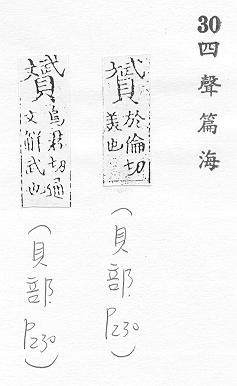 30四聲篇海
贇
於倫切
美也
(貝部 P230)
贇
烏君切通
文觧武也
(貝部 P230)